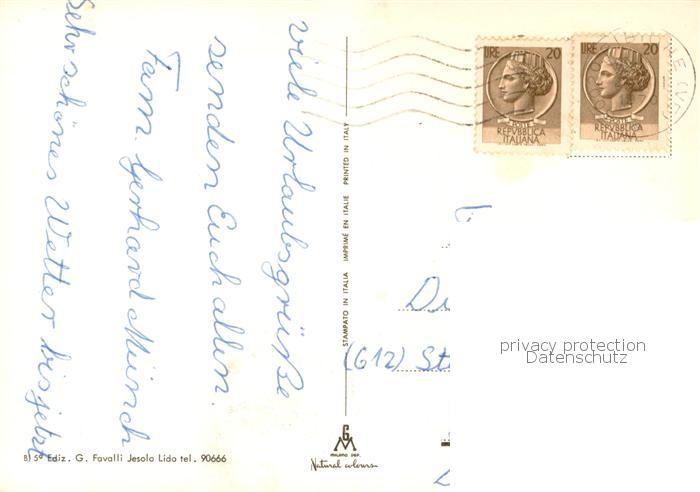 viele Urlaubsgrüße
senden Euch allen.
Fam. Gerhard Münch
Sehr schönes Wetter bis jetzt
8) 5ª Ediz. G. Favalli Jesolo Lido tel. 90666
STAMPATO IN ITALIA IMPRIMÉ EN ITALIE PRINTED IN ITALY
G
M
MILANO DEP.
Natural colours
LIRE 20
POSTE
REPVBBLICA
ITALIANA
LIRE 20
REPVBBLICA
ITALIANA
(612) St
privacy protection
Datenschutz